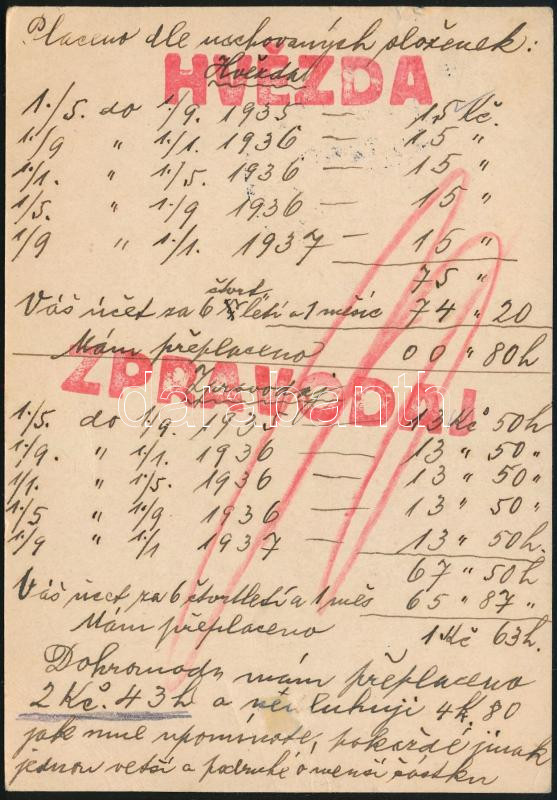 Placeno dle uschovaných složenek:
HVĚZDA
Hvězda
1./5. do 1./9. 1935 — 15 Kč.
1./9 " 1./1. 1936 — 15 "
1./1. " 1./5. 1936 — 15 "
1./5. " 1./9 1936 — 15 "
1./9 " 1./1. 1937 — 15 "
75 "
čtvrt
Váš účet za 6 letí a 1 měsíc 74 " 20
Mám přeplaceno 00 " 80h
ZPRAVODAJ
Zpravodaj
darabanth
1./5. do 1./9. 1935 — 13 Kč 50h
1./9. " 1./1. 1936 — 13 " 50 "
1/1. " 1./5. 1936 — 13 " 50 "
1./5 " 1./9 1936 — 13 " 50 "
1./9 " 1./1 1937 — 13 " 50h.
67 " 50h
Váš účet za 6 čtvrtletí a 1 měs 65 " 87 "
Mám přeplaceno 1 Kč 63h.
Dohromady mám přeplaceno
2 Kč. 43h a ne dluhuji 4k. 80
jak mne upomínáte, pokaždé jinak
jednou vetší a podruhé o menší částku